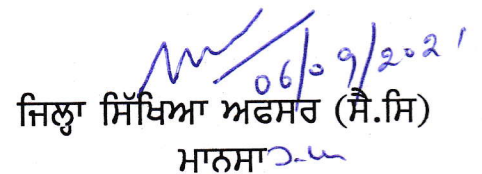 06/09/2021
ਜਿਲ੍ਹਾ ਸਿੱਖਿਆ ਅਫਸਰ (ਸੈ.ਸਿ)
ਮਾਨਸਾ